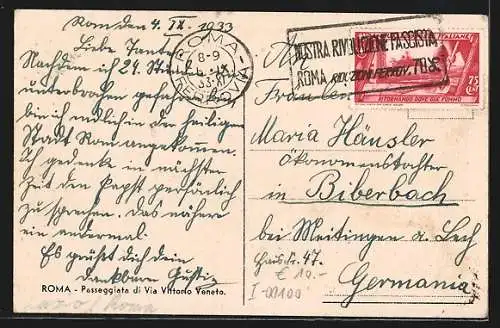 Rom den 4. IX. 1933
Liebe Tante!
Nachdem ich 24 Stunden un-
unterbrochen gefahren
bin ich endlich in der heiligen
Stadt Rom angekommen.
Ich gedenke in nächster
Zeit den Papst persönlich
zu sprechen. Das nähere
ein andermal.
Es grüßt dich dein
dankbarer Gustl
ROMA - Passeggiata di Via Vittorio Veneto.
ROMA
8-9
IX
33.XI
FERROVIA
MOSTRA RIVOLUZIONE FASCISTA
ROMA RIDUZIONI FERROV. 70%
POSTE ITALIANE
75
CENT
RITORNANDO DOVE GIÀ FUMMO
Fräulein
Maria Häusler
Ökonomenstochter
in Biberbach
bei Meitingen a. Lech
Haus Nr. 47.
Germania
€ 10.-
I-00100